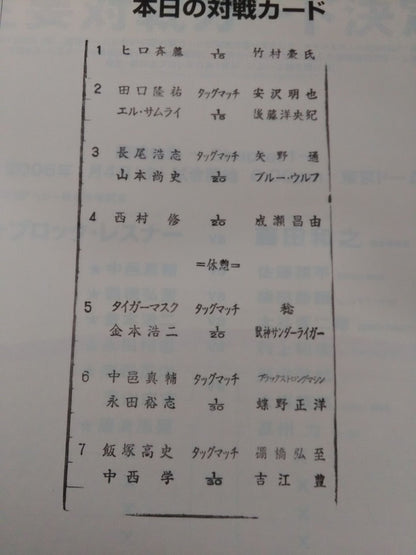 本日の対戦カード
1 ヒロ斉藤 1/15 竹村豪氏
2 田口隆祐 タッグマッチ 安沢明也
エル・サムライ 1/15 後藤洋央紀
3 長尾浩志 タッグマッチ 矢野通
山本尚史 1/20 ブルー・ウルフ
4 西村修 1/20 成瀬昌由
=休憩=
5 タイガーマスク タッグマッチ 稔
金本浩二 1/20 獣神サンダーライガー
6 中邑真輔 タッグマッチ ブラックストロングマシン
永田裕志 1/30 蝶野正洋
7 飯塚高史 タッグマッチ 棚橋弘至
中西学 1/30 吉江豊